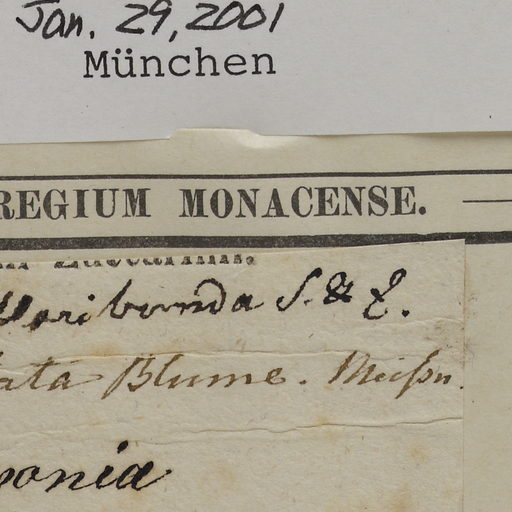 Jan. 29, 2001
München
REGIUM MONACENSE.
Zuccarini.
floribunda S. & Z.
ata Blume. Meissn.
ponia